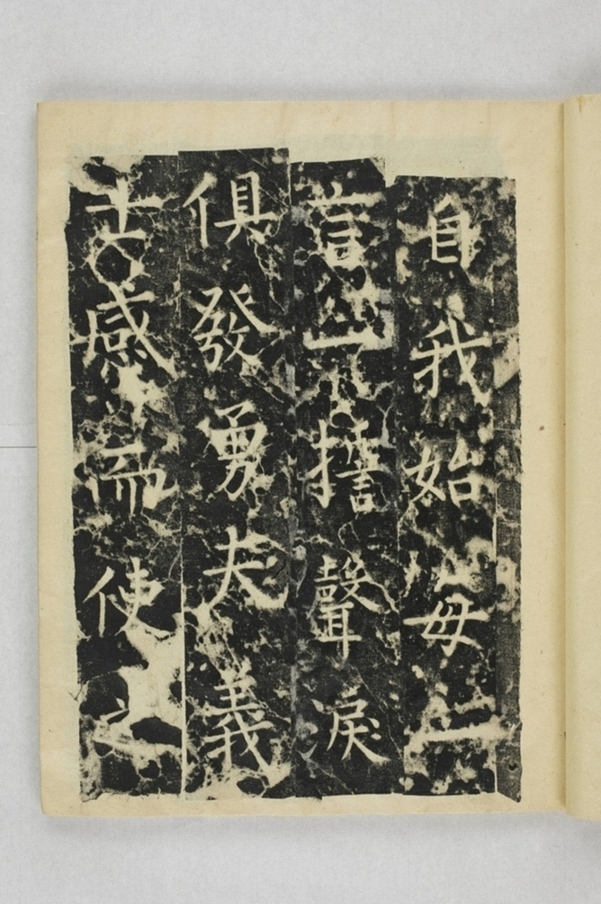 自我始毋一
言一擔聲淚
俱發勇夫義
士感而使之